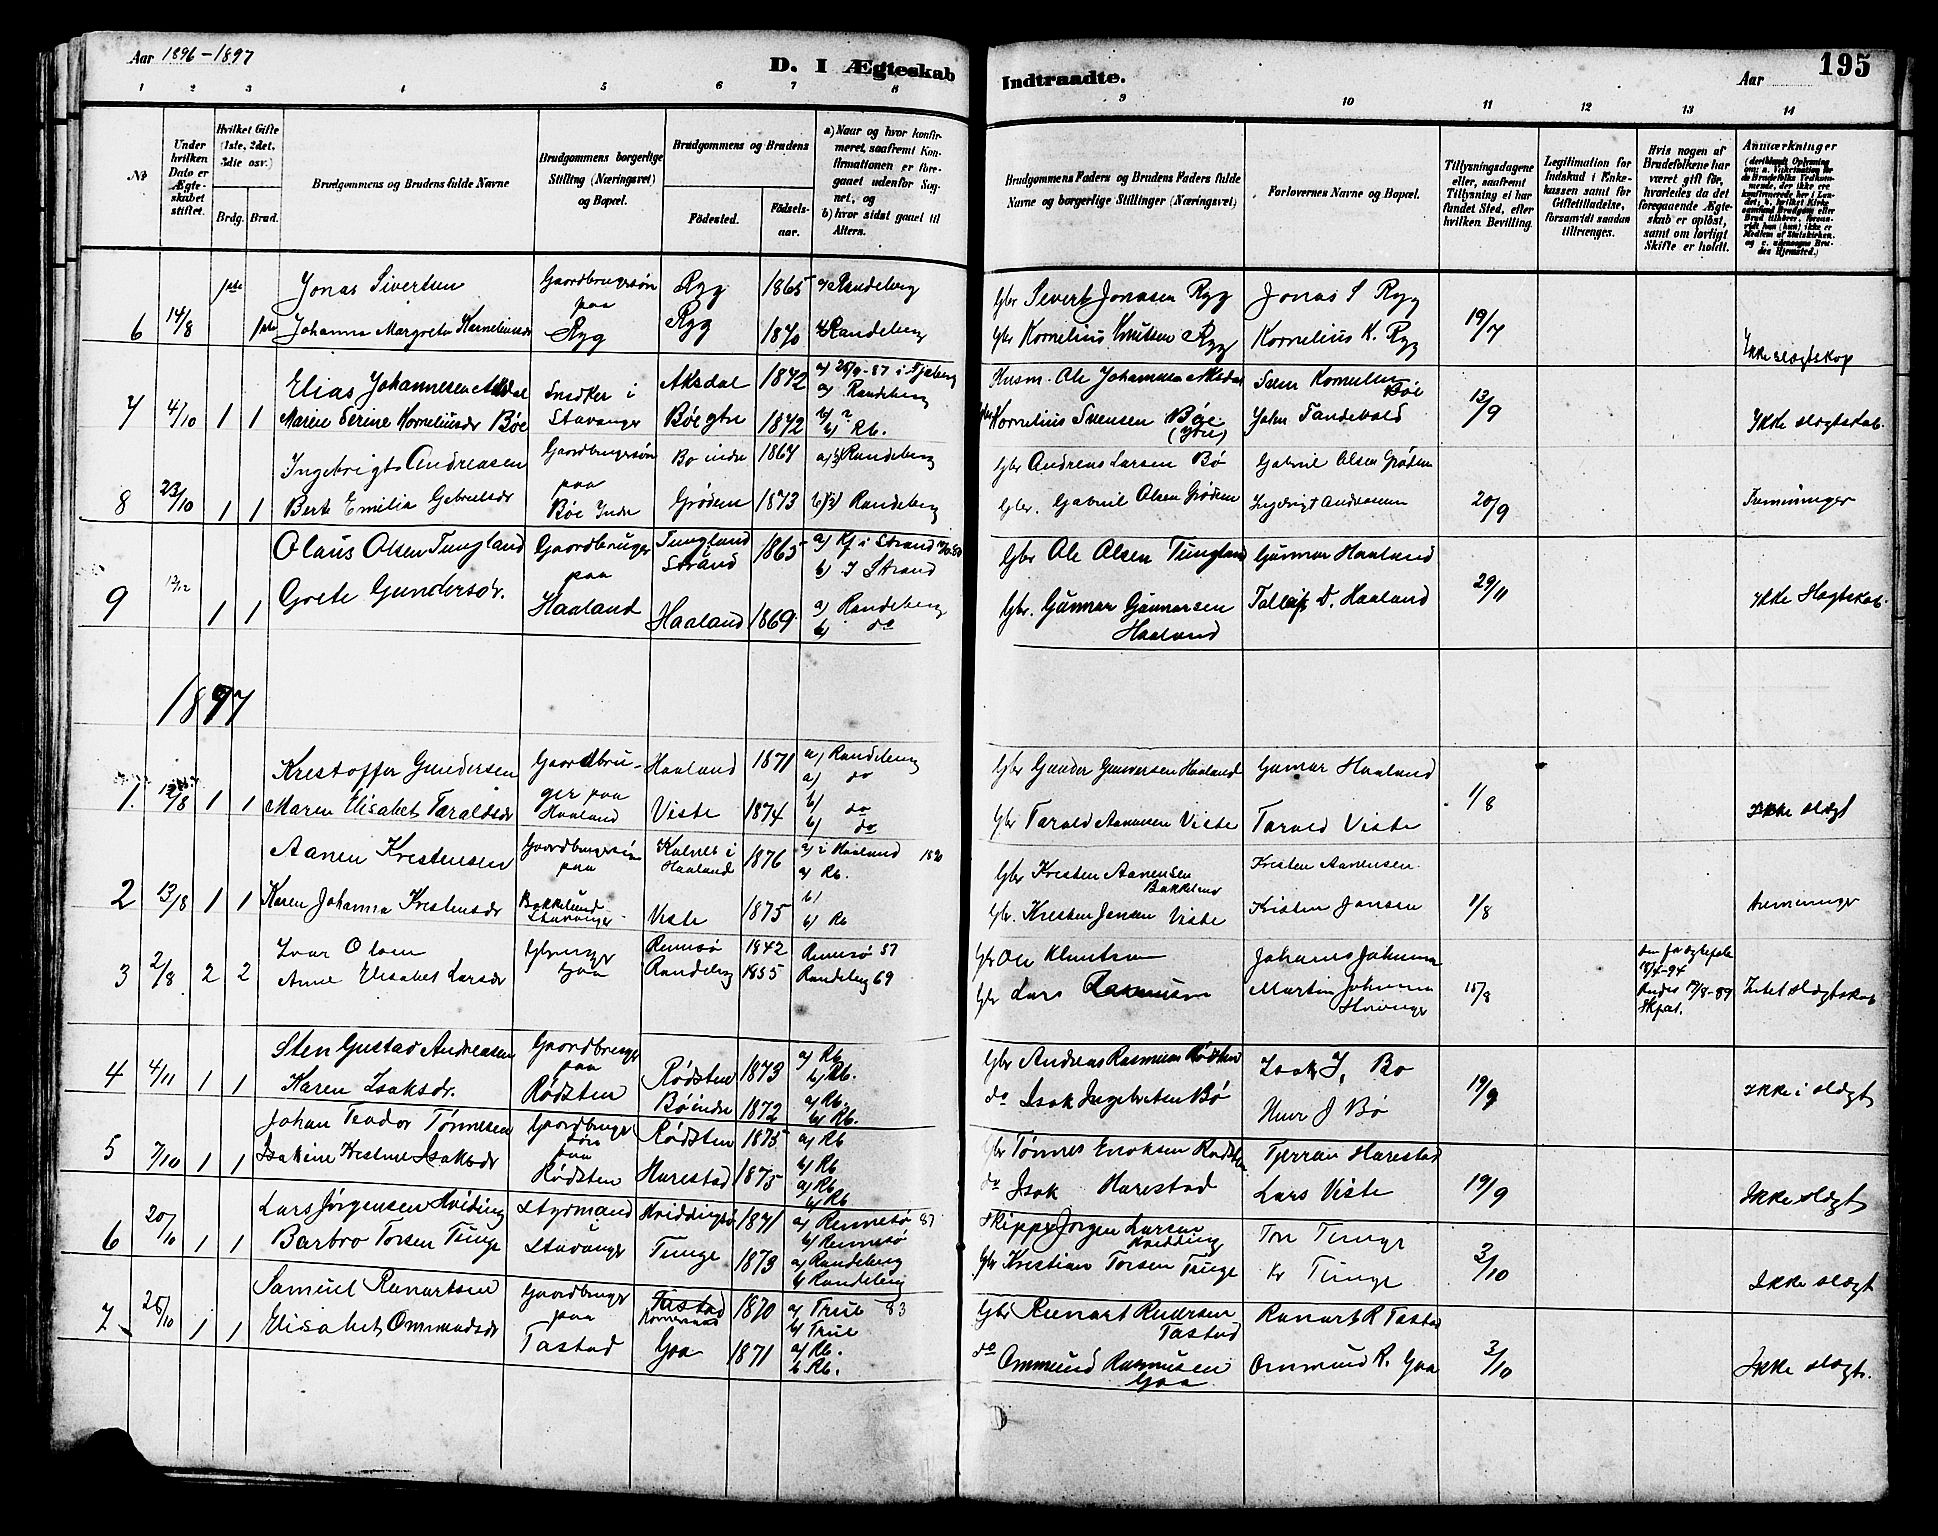 Aar 1896-1897
D. I Ægteskab Indtraadte.
Aar
195
1 2 3 4 5 6 7 8 9 10 11 12 13 14
No
Under hvilken Dato er Ægteskabet stiftet.
Hvilket Gifte (1ste, 2det, 3die osv.)
Brdg. Brud.
Brudgommens og Brudens fulde Navne
Brudgommens borgerlige Stilling (Næringsvei) og Bopæl.
Brudgommens og Brudens
Fødested.
Fødselsaar.
a) Naar og hvor konfirmeret, saafremt Konfirmationen er foregaaet udenfor Sognet, og
b) hvor sidst gaaet til Alters.
Brudgommens Faders og Brudens Faders fulde Navne og borgerlige Stillinger (Næringsvei)
Forlovernes Navne og Bopæl.
Tillysningsdagene eller, saafremt Tillysning ei har fundet Sted, efter hvilken Bevilling.
Legitimation for Indskud i Enkekassen samt for Giftetilladelse, forsaavidt saadan tiltrænges.
Hvis nogen af Brudefolkene har været gift før, hvorledes da det foregaaende Ægteskab er opløst, samt om lovligt Skifte er holdt.
Anmærkninger
6 14/8 1ste Jonas Sivertsen Gaardbrugersøn paa Ryg Ryg 1865 Randeberg Gbr Sivert Jonasen Ryg Jonas S Ryg 19/7
1ste Johanna Margrete Korneliusdr Ryg 1870 Randeberg Gbr Kornelius Knutsen Ryg Kornelius K. Ryg Ikke slegtskap
7 4/10 1 1 Elias Johannesen Aksdal Snedker i Stavanger Aksdal 1872 a) Randeberg Husm. Ole Johannesen Aksdal Bøe 13/9
Maren Serine Korneliusdr Bøe Bøe ytre 1872 b) ? b) Rb. Kornelius Svensen Bøe (ytre) John Tandevold Ikke slægtskab.
8 23/10 1 1 Ingebrigt Andreasen Gaardbrugersøn paa Bøe Indre Bø indre 1864 Randeberg Gbr Andreas Larsen Bø Gabriel Olsen Grødem 20/9
Berte Emilia Gabrielsdr Grødem 1873 Randeberg Gbr. Gabriel Olsen Grødem Ingebrigt Andreasen Tremenninger
9 12/12 1 1 Olaus Olsen Tungland Gaardbruger paa Haaland Tungland Strand 1865 a) Kf i Strand b) I Strand Gbr Ole Olsen Tungland Gunnar Haaland 29/11
Grete Gundersdr. Haaland 1869 a) Randeberg b) do Gbr. Gunnar Gunnarsen Haaland Talleif D. Haaland Ikke slægtskab.
1897
1. 12/8 1 1 Kristoffer Gundersen Gaardbruger paa Haaland Haaland 1871 a) Randeberg a) do Gbr Gunder Gunnarsen Haaland Gunnar Haaland 1/8
Maren Elisabet Taraldsdr Viste 1874 b) do b) do Gbr Tarald Aanensen Viste Tarald Viste Ikke slægt
2 13/8 1 1 Aanen Kristensen Gaardbrugersøn paa Bakkelund Stavanger Kalnes i Haaland 1876 a) i Haaland a) Rb. Gbr Kristen Aanensen Bakkelund Kristen Aanensen 1/8
Karen Johanna Kristensdr Viste 1875 b) b) Rb Gbr. Kristen Jensen Viste Kristen Jensen tremenninger
3 2/8 2 2 Ivar Olsen Gbruger Goa Rennesø 1842 Rennesø 57 Gbr Ole Knutsen Johannes Johannesen 15/8
Anne Elisabet Larsdr Randeberg 1855 Randeberg 69 Gbr Lars Rasmussen Martin Johannesen Stavanger 18/4-94 Skjøt. Intet slægtskab
4 4/11 1 1 Sten Gustav Andreasen Gaardbruger paa Rødsten Rødsten 1873 a) Rb b) Rb. Gbr Andreas Rasmussen Rødsten Isak I. Bø 19/9
Karen Isaksdr. Bø indre 1872 a) Rb. b) Rb. do Isak Ingebretsen Bø J Bø Ikke i slægt
5 7/10 1 1 Johan Teodor Tønnesen Gaardbruger søn paa Rødsten Rødsten 1875 a) Rb b) Rb Gbr Tønnes Eriksen Rødsten Tjerran Harestad 19/9
Isakine Kristine Isaksdr Harestad 1875 a) Rb b) Rb do Isak Harestad Lars Viste Ikke slægt
6 20/10 1 1 Lars Jørgensen Hviding Styrmand Stavanger Hviddingsø 1871 a) Rennesø 87 b) Rennesø Skipper Jørgen Larsen Hvidding Tor Tunge 3/10
Barbro Torsen Tunge Tunge 1873 a) Randeberg b) Randeberg Gbr Kristian Torsen Tunge Kr Tunge Ikke slægt
7 26/10 1 1 Samuel Reinartsen Gaardbruger paa Tastad Tastad 1870 a) True 83 b) True Gbr Reinart Tastad Reinart R Tastad 3/10
Elisabet Ommundsdr Goa 1871 a) Rb. b Rb. do Ommund Rasmusen Goa Ommund R. Goa Ikke slægt.